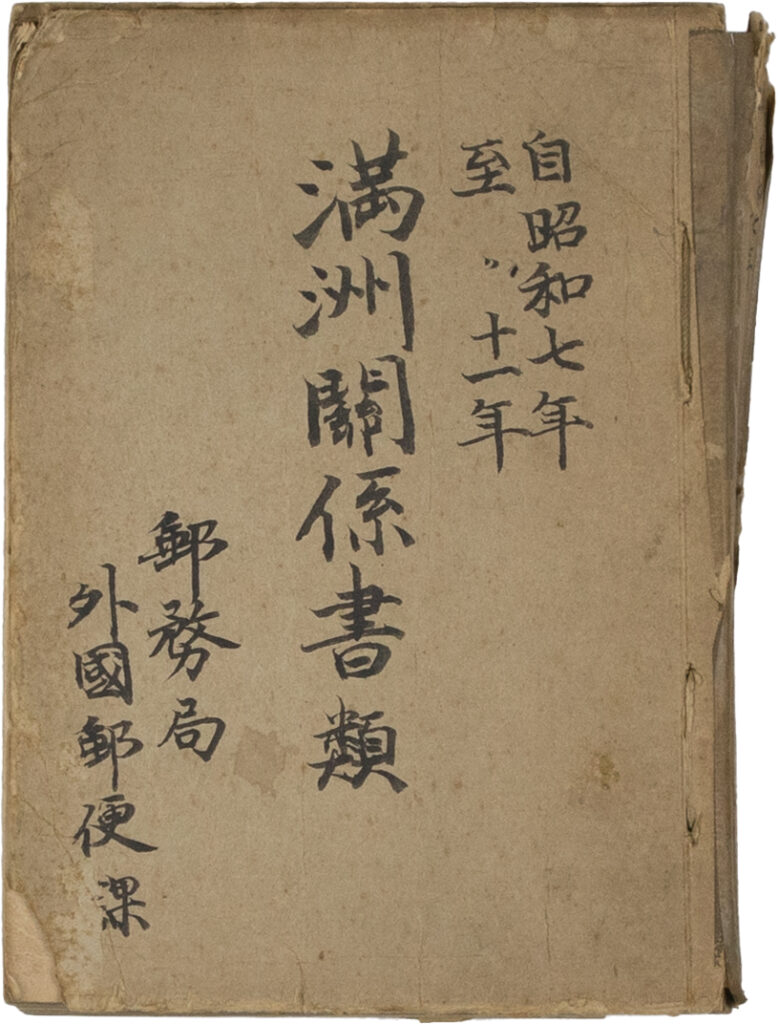 自昭和七年
至〃十一年
満洲関係書類
郵務局
外國郵便課